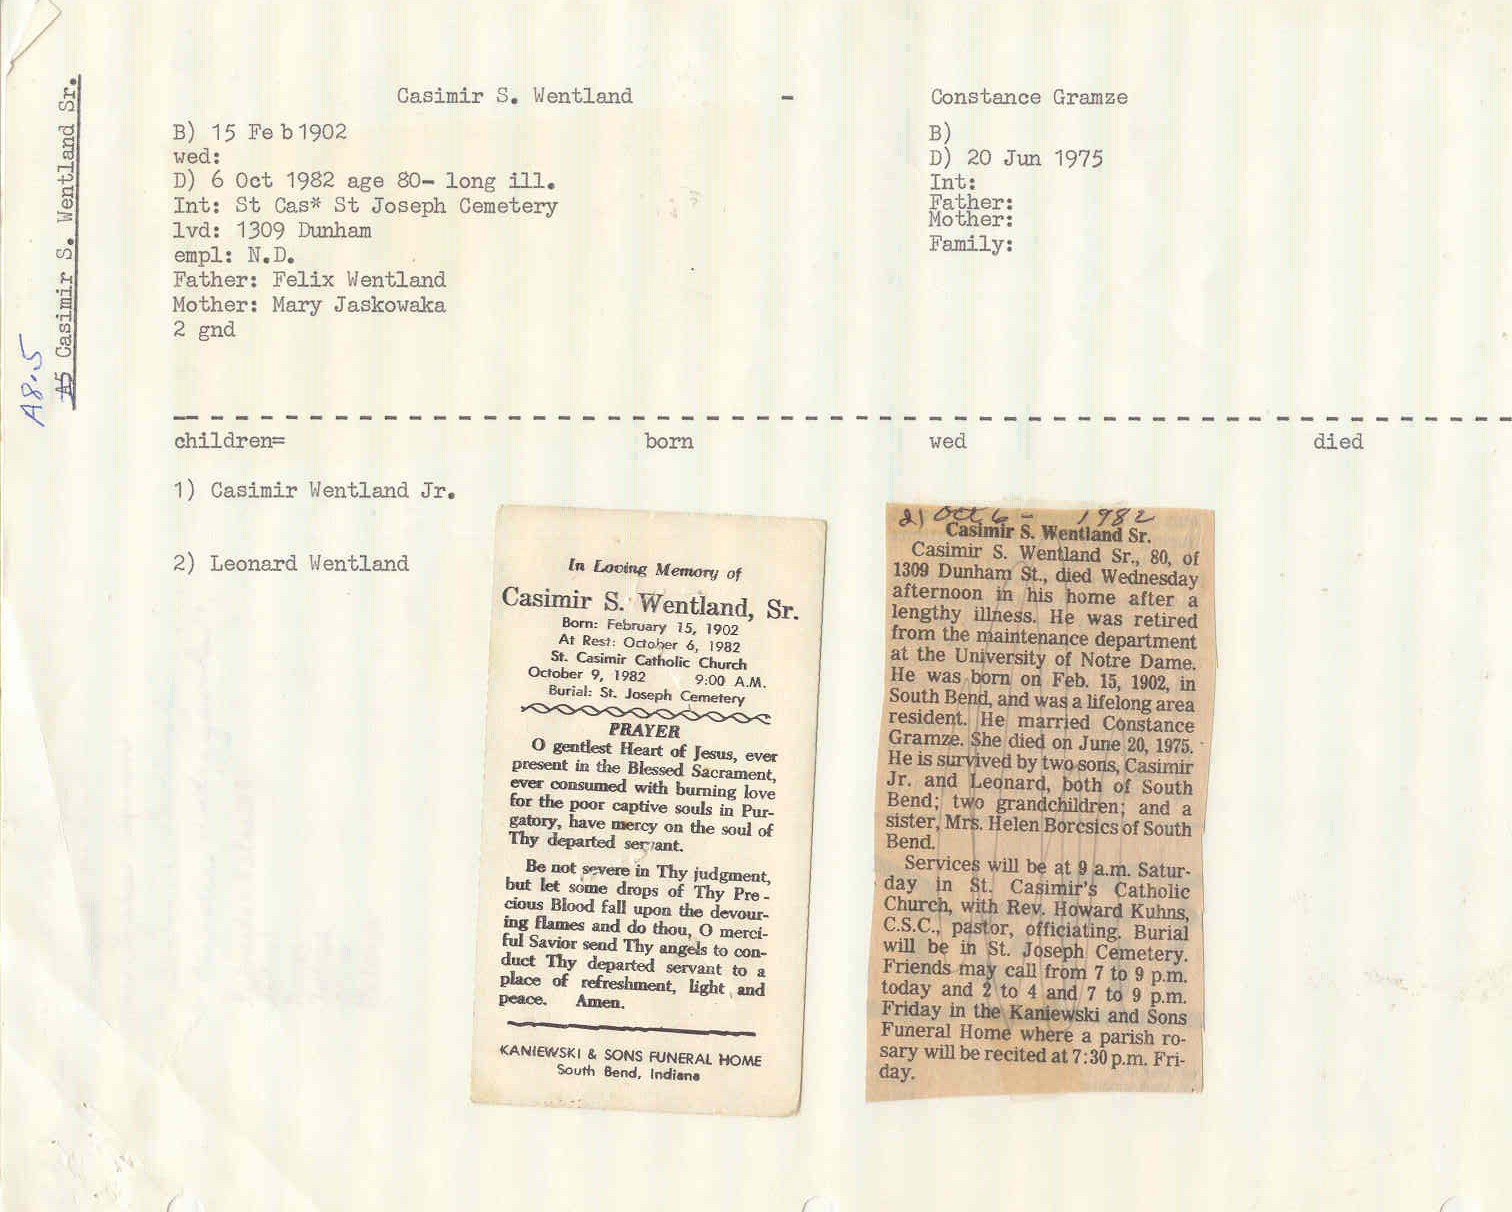 A8.5
A5 Casimir S. Wentland Sr.
Casimir S. Wentland - Constance Gramze
B) 15 Fe b 1902
wed:
D) 6 Oct 1982 age 80- long ill.
Int: St Cas* St Joseph Cemetery
lvd: 1309 Dunham
empl: N.D.
Father: Felix Wentland
Mother: Mary Jaskowaka
2 gnd
B)
D) 20 Jun 1975
Int:
Father:
Mother:
Family:
children= born wed died
1) Casimir Wentland Jr.
2) Leonard Wentland
In Loving Memory of
Casimir S. Wentland, Sr.
Born: February 15, 1902
At Rest: October 6, 1982
St. Casimir Catholic Church
October 9, 1982 9:00 A.M.
Burial: St. Joseph Cemetery
PRAYER
O gentlest Heart of Jesus, ever
present in the Blessed Sacrament,
ever consumed with burning love
for the poor captive souls in Pur-
gatory, have mercy on the soul of
Thy departed servant.
Be not severe in Thy judgment,
but let some drops of Thy Pre-
cious Blood fall upon the devour-
ing flames and do thou, O merci-
ful Savior send Thy angels to con-
duct Thy departed servant to a
place of refreshment, light and
peace. Amen.
KANIEWSKI & SONS FUNERAL HOME
South Bend, Indiana
2) Oct 6 - 1982
Casimir S. Wentland Sr.
Casimir S. Wentland Sr., 80, of
1309 Dunham St., died Wednesday
afternoon in his home after a
lengthy illness. He was retired
from the maintenance department
at the University of Notre Dame.
He was born on Feb. 15, 1902, in
South Bend, and was a lifelong area
resident. He married Constance
Gramze. She died on June 20, 1975.
He is survived by two sons, Casimir
Jr. and Leonard, both of South
Bend; two grandchildren; and a
sister, Mrs. Helen Borcsics of South
Bend.
Services will be at 9 a.m. Satur-
day in St. Casimir's Catholic
Church, with Rev. Howard Kuhns,
C.S.C., pastor, officiating. Burial
will be in St. Joseph Cemetery.
Friends may call from 7 to 9 p.m.
today and 2 to 4 and 7 to 9 p.m.
Friday in the Kaniewski and Sons
Funeral Home where a parish ro-
sary will be recited at 7:30 p.m. Fri-
day.